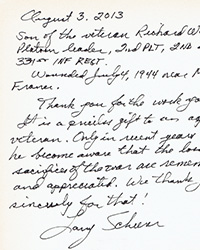 August 3. 2013
Son of the veteran Richard W
Platoon leader, 2nd PLT, 2nd
331st INF REGT.
Wounded July 4, 1944 near M
France.
Thank you for the work yo
It is a priceless gift to an ag
veteran. Only in recent years
he become aware that the los
sacrifices of the war are remem
and appreciated. We thank
sincerely for that!
Gary